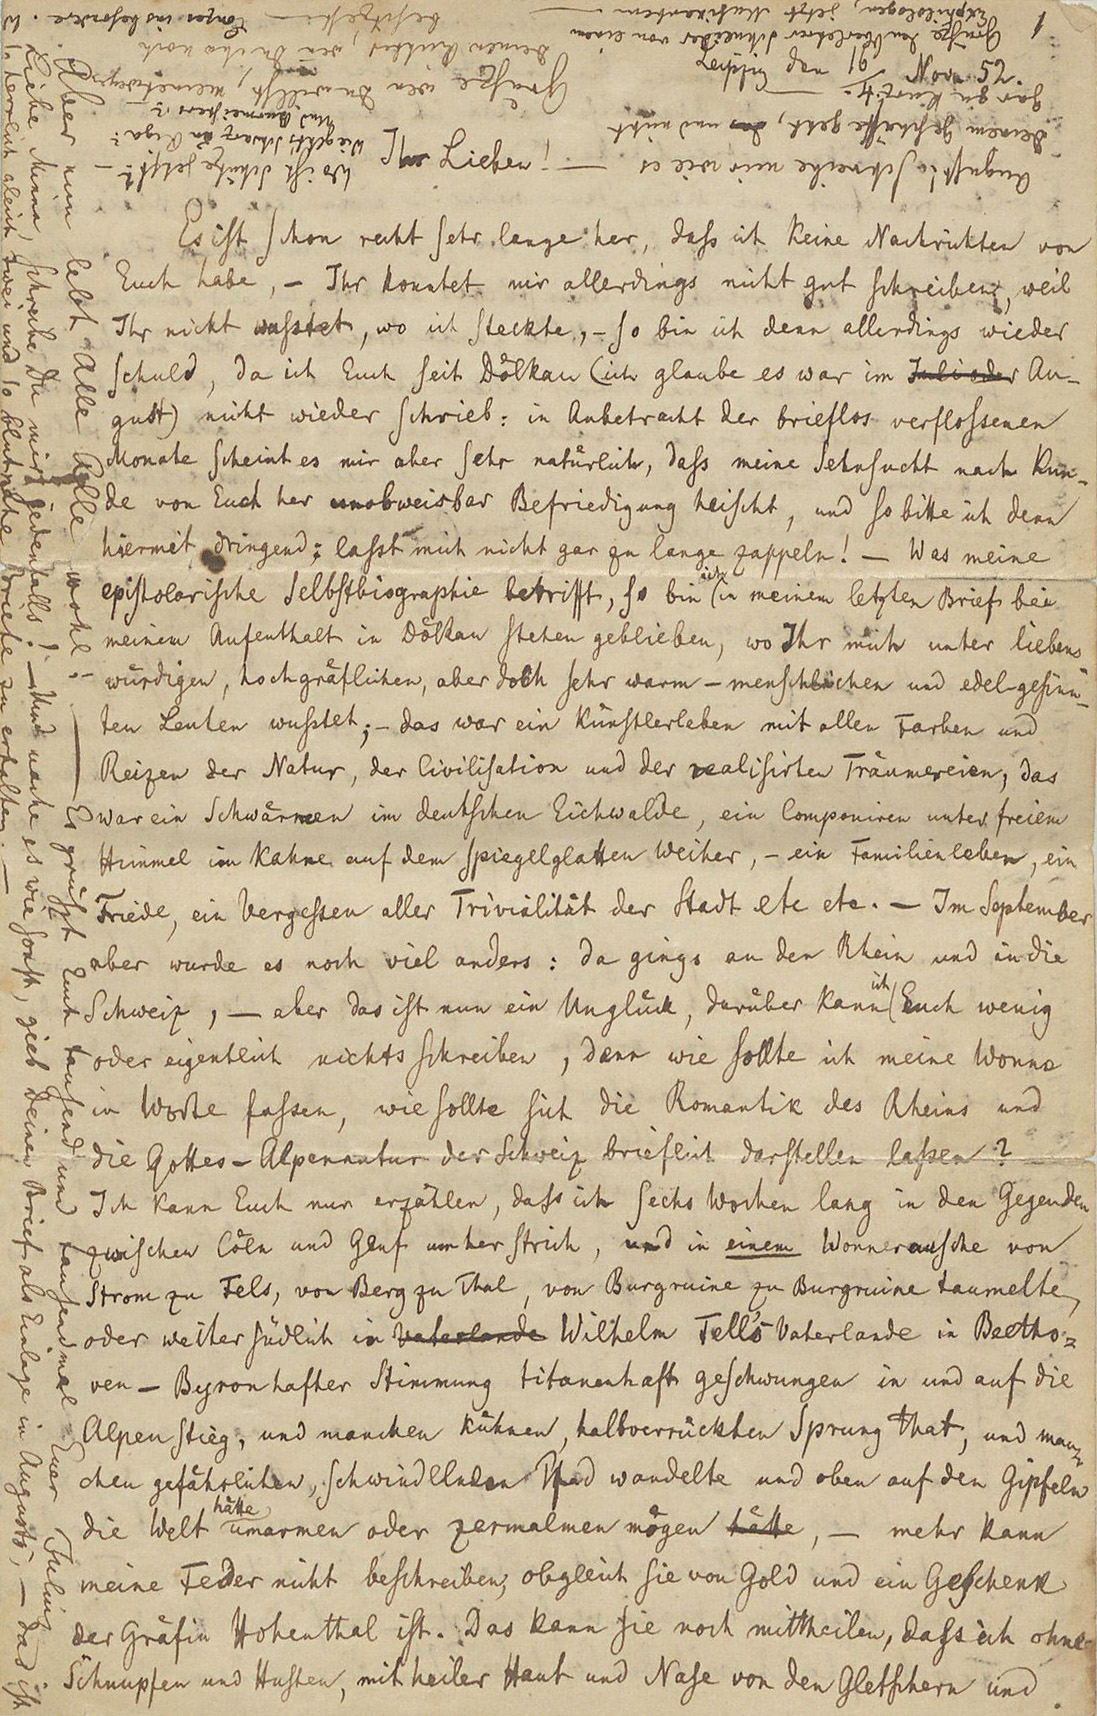 1
Leipzig den 16 Nov. 52.
Ihr Lieben!
Es ist schon recht sehr lange her, dass ich keine Nachrichten von
Euch habe, – Ihr konntet mir allerdings nicht gut schreiben, weil
Ihr nicht wusstet, wo ich steckte, – so bin ich denn allerdings wieder
schuld, da ich Euch seit Dölkau (ich glaube es war im Juli oder Au-
gust) nicht wieder schrieb: in Anbetracht der brieflos verflossenen
Monate scheint es mir aber sehr natürlich, dass meine Sehnsucht nach Kun-
de von Euch her unabweisbar Befriedigung heischt, und so bitte ich denn
hiermit dringend: lasst mich nicht gar zu lange zappeln! – Was meine
epistolarische Selbstbiographie betrifft, so bin ich in meinem letzten Brief bei
meinem Aufenthalt in Dölkau stehen geblieben, wo Ihr mich unter liebens-
würdigen, hochgräflichen, aber doch sehr warm-menschlichen und edel-gesinn-
ten Leuten wusstet; – das war ein Künstlerleben mit allen Farben und
Reizen der Natur, der Civilisation und der realisirten Träumereien, das
war ein Schwärmen im deutschen Eichwalde, ein Componiren unter freiem
Himmel im Kahne auf dem spiegelglatten Weiher, – ein Familienleben, ein
Friede, ein Vergessen aller Trivialität der Stadt etc etc. – Im September
aber wurde es noch viel anders: da gings an den Rhein und in die
Schweiz, – aber das ist nun ein Unglück, darüber kann ich Euch wenig
oder eigentlich nichts schreiben, denn wie sollte ich meine Wonne
in Worte fassen, wie sollte sich die Romantik des Rheins und
die Gottes-Alpennatur der Schweiz brieflich darstellen lassen?
Ich kann Euch nur erzählen, dass ich sechs Wochen lang in den Gegenden
zwischen Cöln und Genf umher strich, und in einem Wonnerausche von
Strom zu Fels, von Berg zu Thal, von Burgruine zu Burgruine taumelte,
oder weiter südlich in Vaterlande Wilhelm Tell's Vaterlande in Beetho-
ven-Byronhafter Stimmung titanenhaft geschwungen in und auf die
Alpen stieg, und manchen kühnen, halbverrückten Sprung that, und man-
chen gefährlichen, schwindelnden Pfad wandelte und oben auf den Gipfeln
die Welt hätte umarmen oder zermalmen mögen hätte, – mehr kann
meine Feder nicht beschreiben, obgleich sie von Gold und ein Geschenk
der Gräfin Hohenthal ist. Das kann sie noch mittheilen, dass ich ohne
Schnupfen und Husten, mit heiler Haut und Nase von den Gletschern und
Aber nun lebt Alle Alle wohl. – Es grüsst Euch tausend und tausendmal Euer Julius
Liebe Minna, schreibe Du mir jedenfalls! – Und mache es wie sonst, gieb Deinen Brief als Einlage in August's, – das ist
so herrlich gleich zwei und so Briefe zu erhalten. –
August! schreibe mir wie es
Deinem Geschäfte geht, und nicht
gar zu kurz!
Grüsse den Oberlehrer Schneider von einem
Exphilologen, jetzt Musikanten
Grüsse wen Du willst, meinetwegen
Wo ist Schütze jetzt? –
Wie geht's Schwarz in Riga?